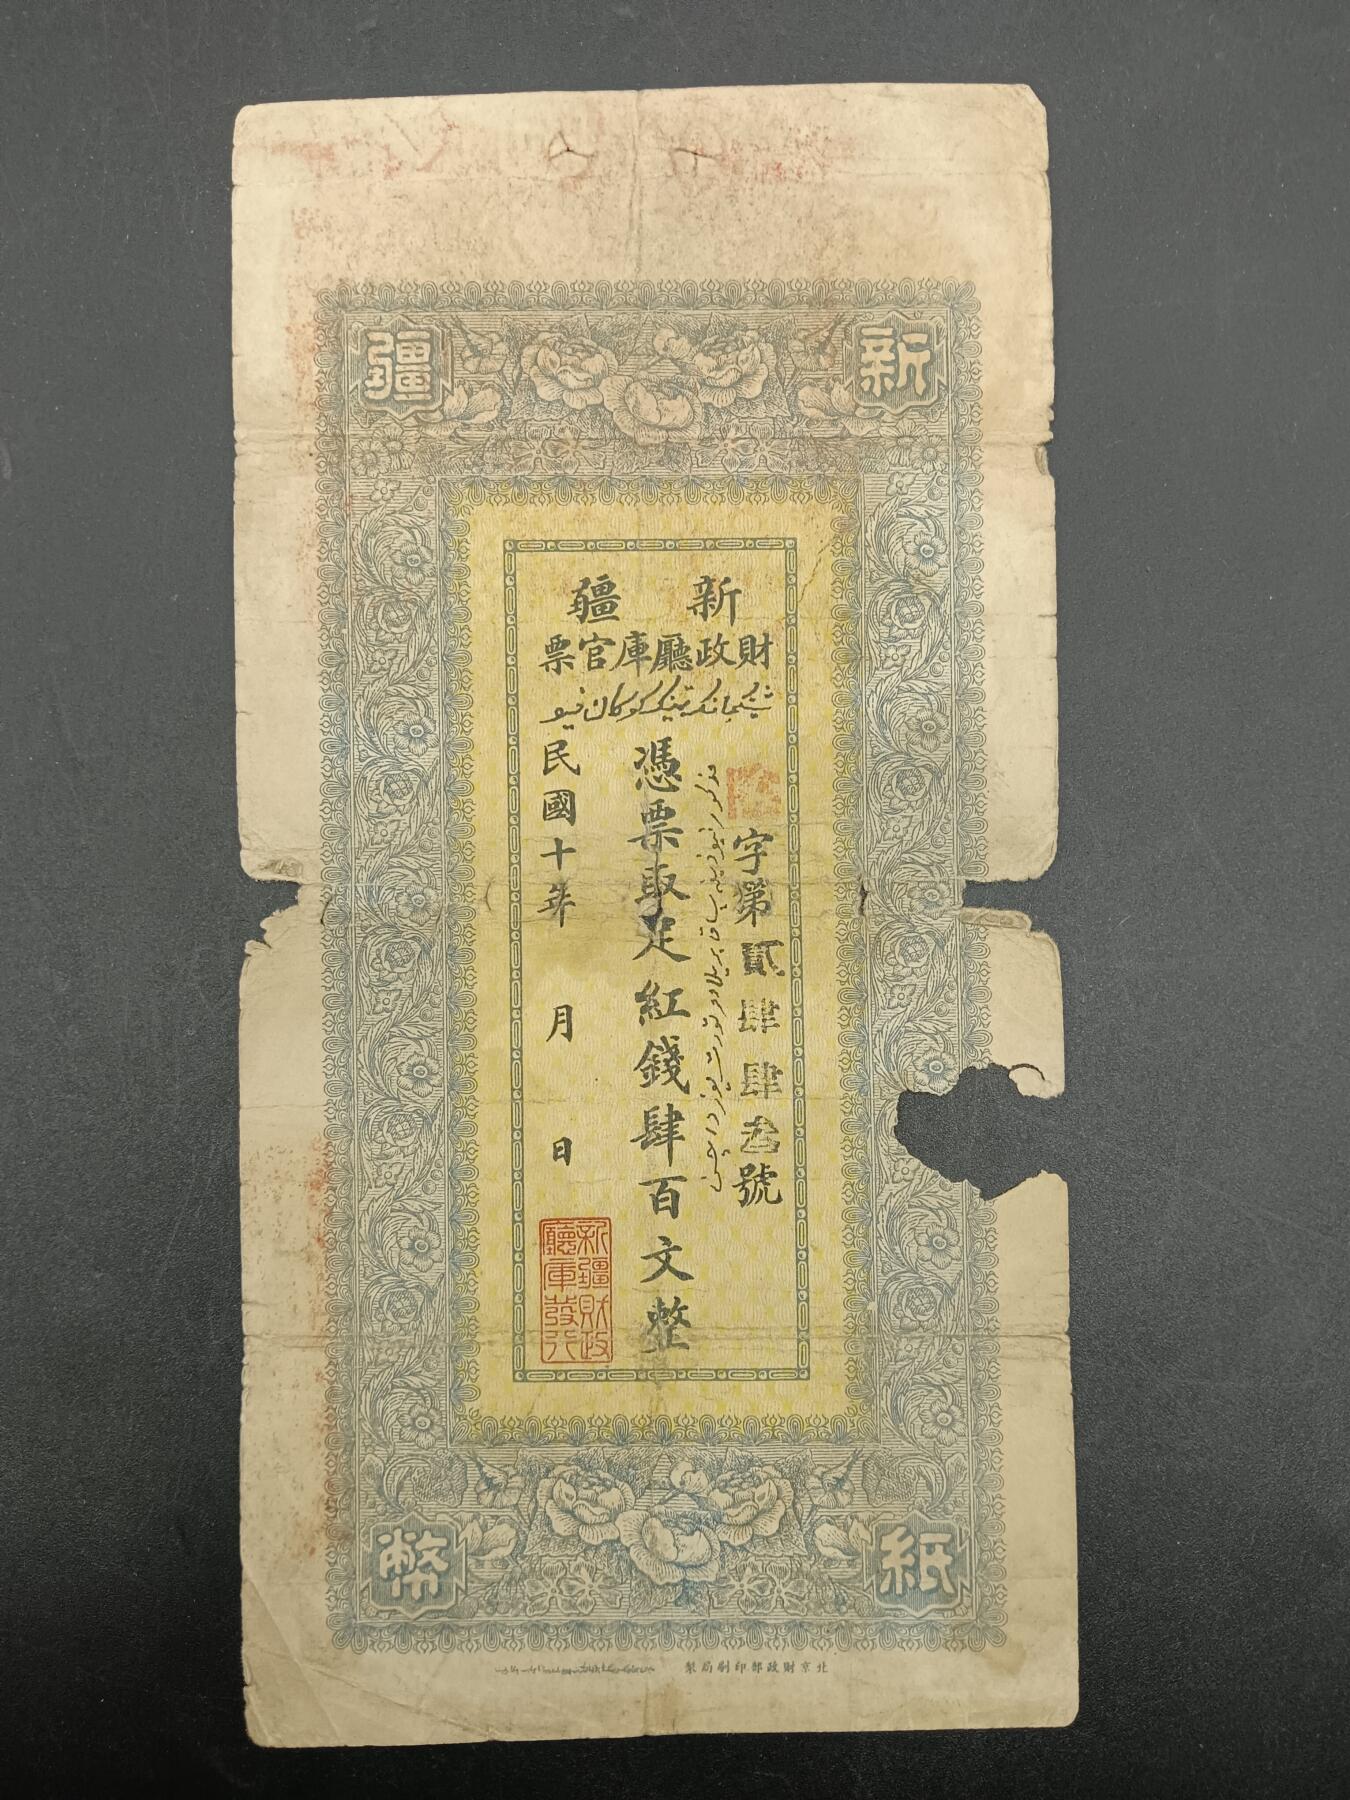 新疆
新疆
財政廳庫官票
字第貳肆肆叁號
憑票取足紅錢肆百文整
民國十年 月 日
新疆財政廳庫發行
紙幣
北京財政部印刷局製